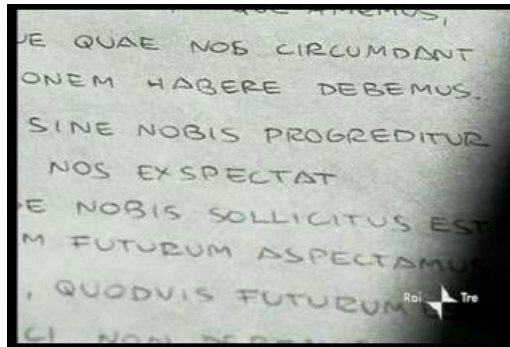 QUE AMEMUS,
UE QUAE NOS CIRCUMDANT
ONEM HABERE DEBEMUS.
SINE NOBIS PROGREDITUR
NOS EXSPECTAT
E NOBIS SOLLICITUS EST
M FUTURUM ASPECTAMUS
, QUODVIS FUTURUM
Rai Tre
CI NON